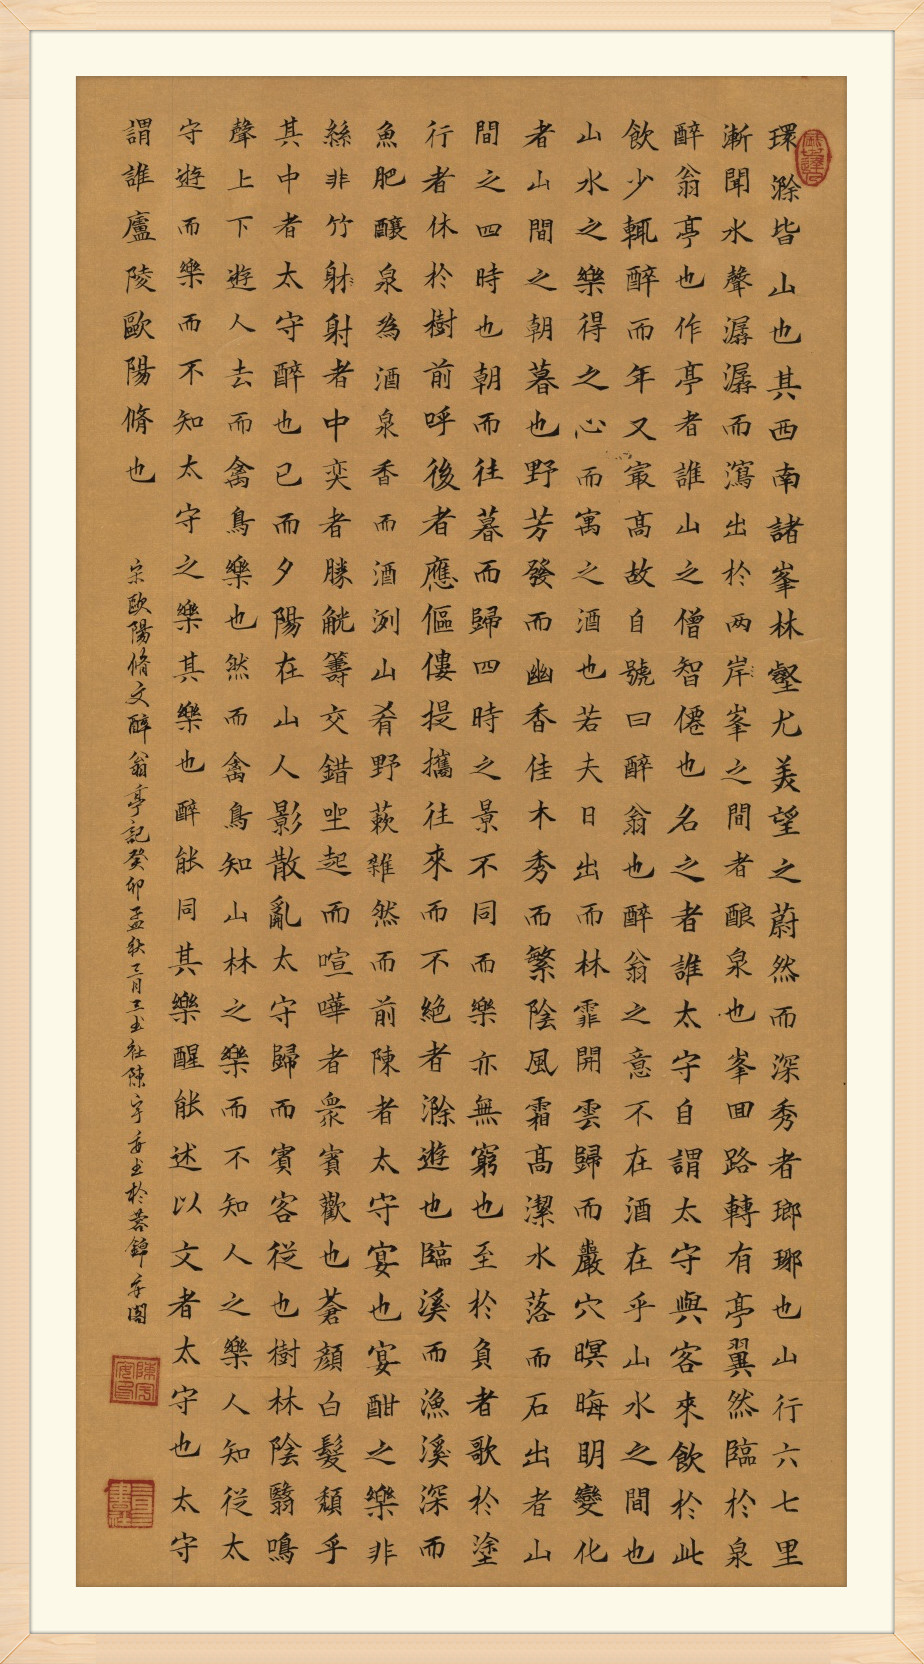 環滁皆山也其西南諸峯林壑尤美望之蔚然而深秀者瑯琊也山行六七里
漸聞水聲潺潺而瀉出於两岸峯之間者酿泉也峯囬路轉有亭翼然臨於泉
醉翁亭也作亭者誰山之僧智僊也名之者誰太守自謂太守與客來飲於此
飲少輒醉而年又冣高故自號曰醉翁也醉翁之意不在酒在乎山水之間也
山水之樂得之心而寓之酒也若夫日出而林霏開雲歸而巖穴暝晦明變化
者山間之朝暮也野芳發而幽香佳木秀而繁陰風霜高潔水落而石出者山
間之四時也朝而往暮而歸四時之景不同而樂亦無窮也至於負者歌於塗
行者休於樹前呼後者應傴僂提攜往來而不絕者滁遊也臨溪而漁溪深而
魚肥釀泉為酒泉香而酒洌山肴野蔌雜然而前陳者太守宴也宴酣之樂非
絲非竹射射者中奕者勝觥籌交錯坐起而喧嘩者衆賓歡也蒼顏白髮頹乎
其中者太守醉也已而夕陽在山人影散亂太守歸而賓客從也樹林陰翳鳴
聲上下遊人去而禽鳥樂也然而禽鳥知山林之樂而不知人之樂人知從太
守遊而樂而不知太守之樂其樂也醉能同其樂醒能述以文者太守也太守
謂誰廬陵歐陽脩也
宋歐陽脩文醉翁亭記癸卯孟秋三月三書社陳宇安書於蓉錦閣
陳宇安印
三月三書社